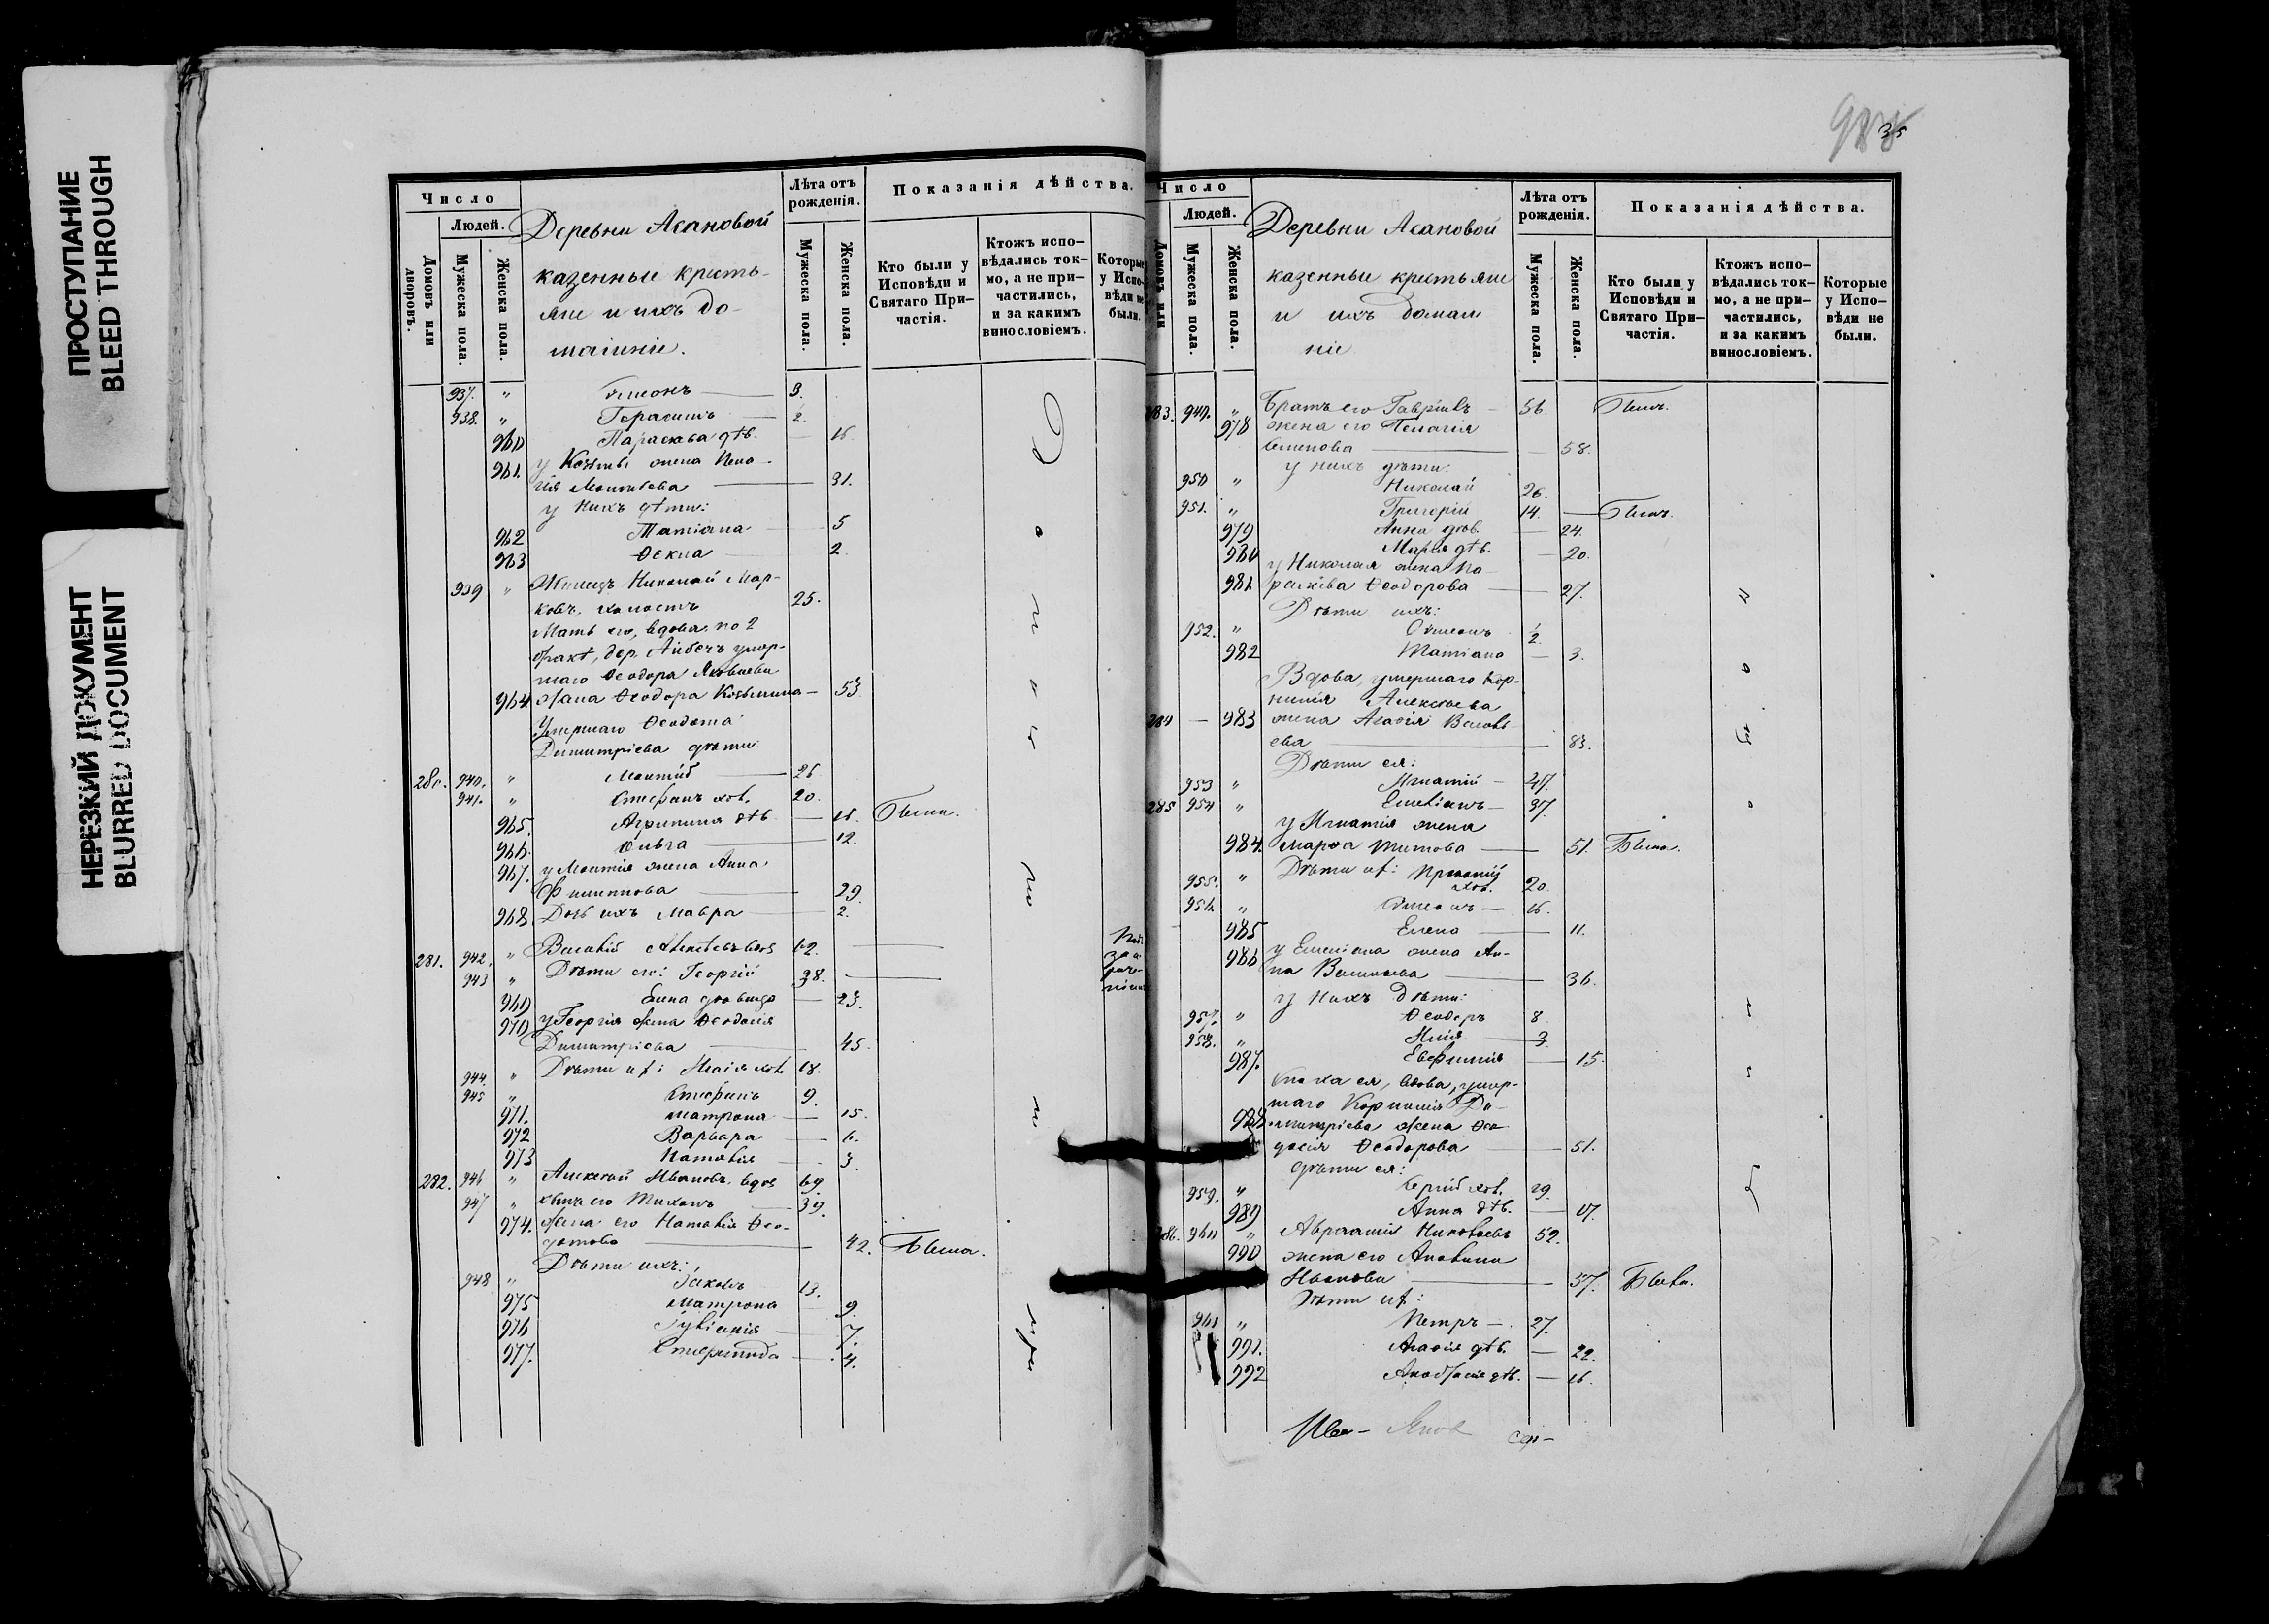 ПРОСТУПАНИЕ
BLEED THROUGH
НЕРЕЗКИЙ ДОКУМЕНТ
BLURRED DOCUMENT
Число
Людей.
Домовъ или дворовъ.
Мужеска пола.
Женска пола.
Деревни Асановой
казенные крестья-
не и ихъ до-
машніе.
Лѣта отъ рожденія.
Мужеска пола.
Женска пола.
Показанія дѣйства.
Кто были у Исповѣди и Святаго При-частія.
Ктожъ испо-вѣдались ток-мо, а не при-частились, и за какимъ винословіемъ.
Которые у Испо-вѣди не были.
937. " Симеонъ — 3.
938. " Герасимъ — 2.
960 Параскева дѣв. — 16.
961. у Козьмы жена Пела-
гія Матвѣева — 31.
у нихъ дѣти:
962 Татіана — 5
963 Ѳекла — 2.
939 " Николай Мар-
ковъ, холостъ 25.
Мать его, вдова, по 2
бракѣ, дер. умер-
шаго Ѳеодора Яковлева
964 жена Ѳеодора Козьмина — 53.
Умершаго Ѳеодота
Димитріева дѣти
280. 940. " — 26
941. " Стефанъ хол. 20.
965. Агрипина дѣв. — 16. Были.
966. Ольга — 12.
967. у жена Анна
Филиппова — 29.
968. Дочь ихъ Мавра — 2.
281. 942. " Василій Алексѣевъ вдов 62. —
943 " Дѣти его: Георгій 38. —
969 Елена дѣвица — 23.
970 у Георгія жена Ѳеодосія
Димитріева — 45.
944. " Дѣти ихъ: Исаія хол. 18.
945 " Стефанъ 9.
971. Матрона — 15.
972 Варвара — 6.
973 Наталія — 3.
282. 946 " Алексѣй Ивановъ, вдов 69.
947 " сынъ его Тихонъ — 39.
974. жена его Наталія Ѳео-
дотова — 42. Были.
Дѣти ихъ:
948 " Іаковъ 13.
975 Матрона — 9.
976 Іуліанія — 7.
977. — 4.
35
Число
Людей.
Домовъ или
Мужеска пола.
Женска пола.
Деревни Асановой
казенные крестьяне
и ихъ домаш
ніе
Лѣта отъ рожденія.
Мужеска пола.
Женска пола.
Показанія дѣйства.
Кто были у Исповѣди и Святаго При-частія.
Ктожъ испо-вѣдались ток-мо, а не при-частились, и за какимъ винословіемъ.
Которые у Испо-вѣди не были.
283. 949. " Братъ его Гавріилъ — 56. Были.
978 жена его Пелагія
Семенова — 58.
у нихъ дѣти:
950 " Николай 26.
951. " Григорій 14. — Были.
979 Анна дѣв. — 24.
980 Марія дѣв. — 20.
у Николая жена Па-
981 раскева Ѳеодорова — 27.
Дѣти ихъ:
952. " Симеонъ 1/2
982 Татіана — 3.
Вдова, умершаго Кор-
нилія Алексѣева
284 — 983 жена Агаѳія Василь-
ева — 83.
Дѣти ея:
953 " Игнатій — 47.
285 954 " Емеліанъ — 37.
у Игнатія жена
984. Марѳа Титова — 51. Были.
955. " Дѣти ихъ: хол. 20.
956. " Симеонъ — 16.
985 Елена — 11.
986 у Емеліана жена Ан-
на Васильева — 36.
у нихъ дѣти:
957. " Ѳеодоръ 8
958. " Илія — 3.
987. Евфимія — 15.
Сноха ея, вдова, умер-
шаго Корнилія Ди-
988 митріева жена Ѳео-
досія Ѳеодорова — 51.
дѣти ея:
959. " Сергій хол. 29.
989 Анна дѣв. — 17.
286. 960 " Авраамій 52.
990 жена его Акилина
Иванова — 57. Были.
Дѣти ихъ:
961 " Петръ — 27.
991. Агаѳія дѣв. — 22.
992 дѣв. — 16.